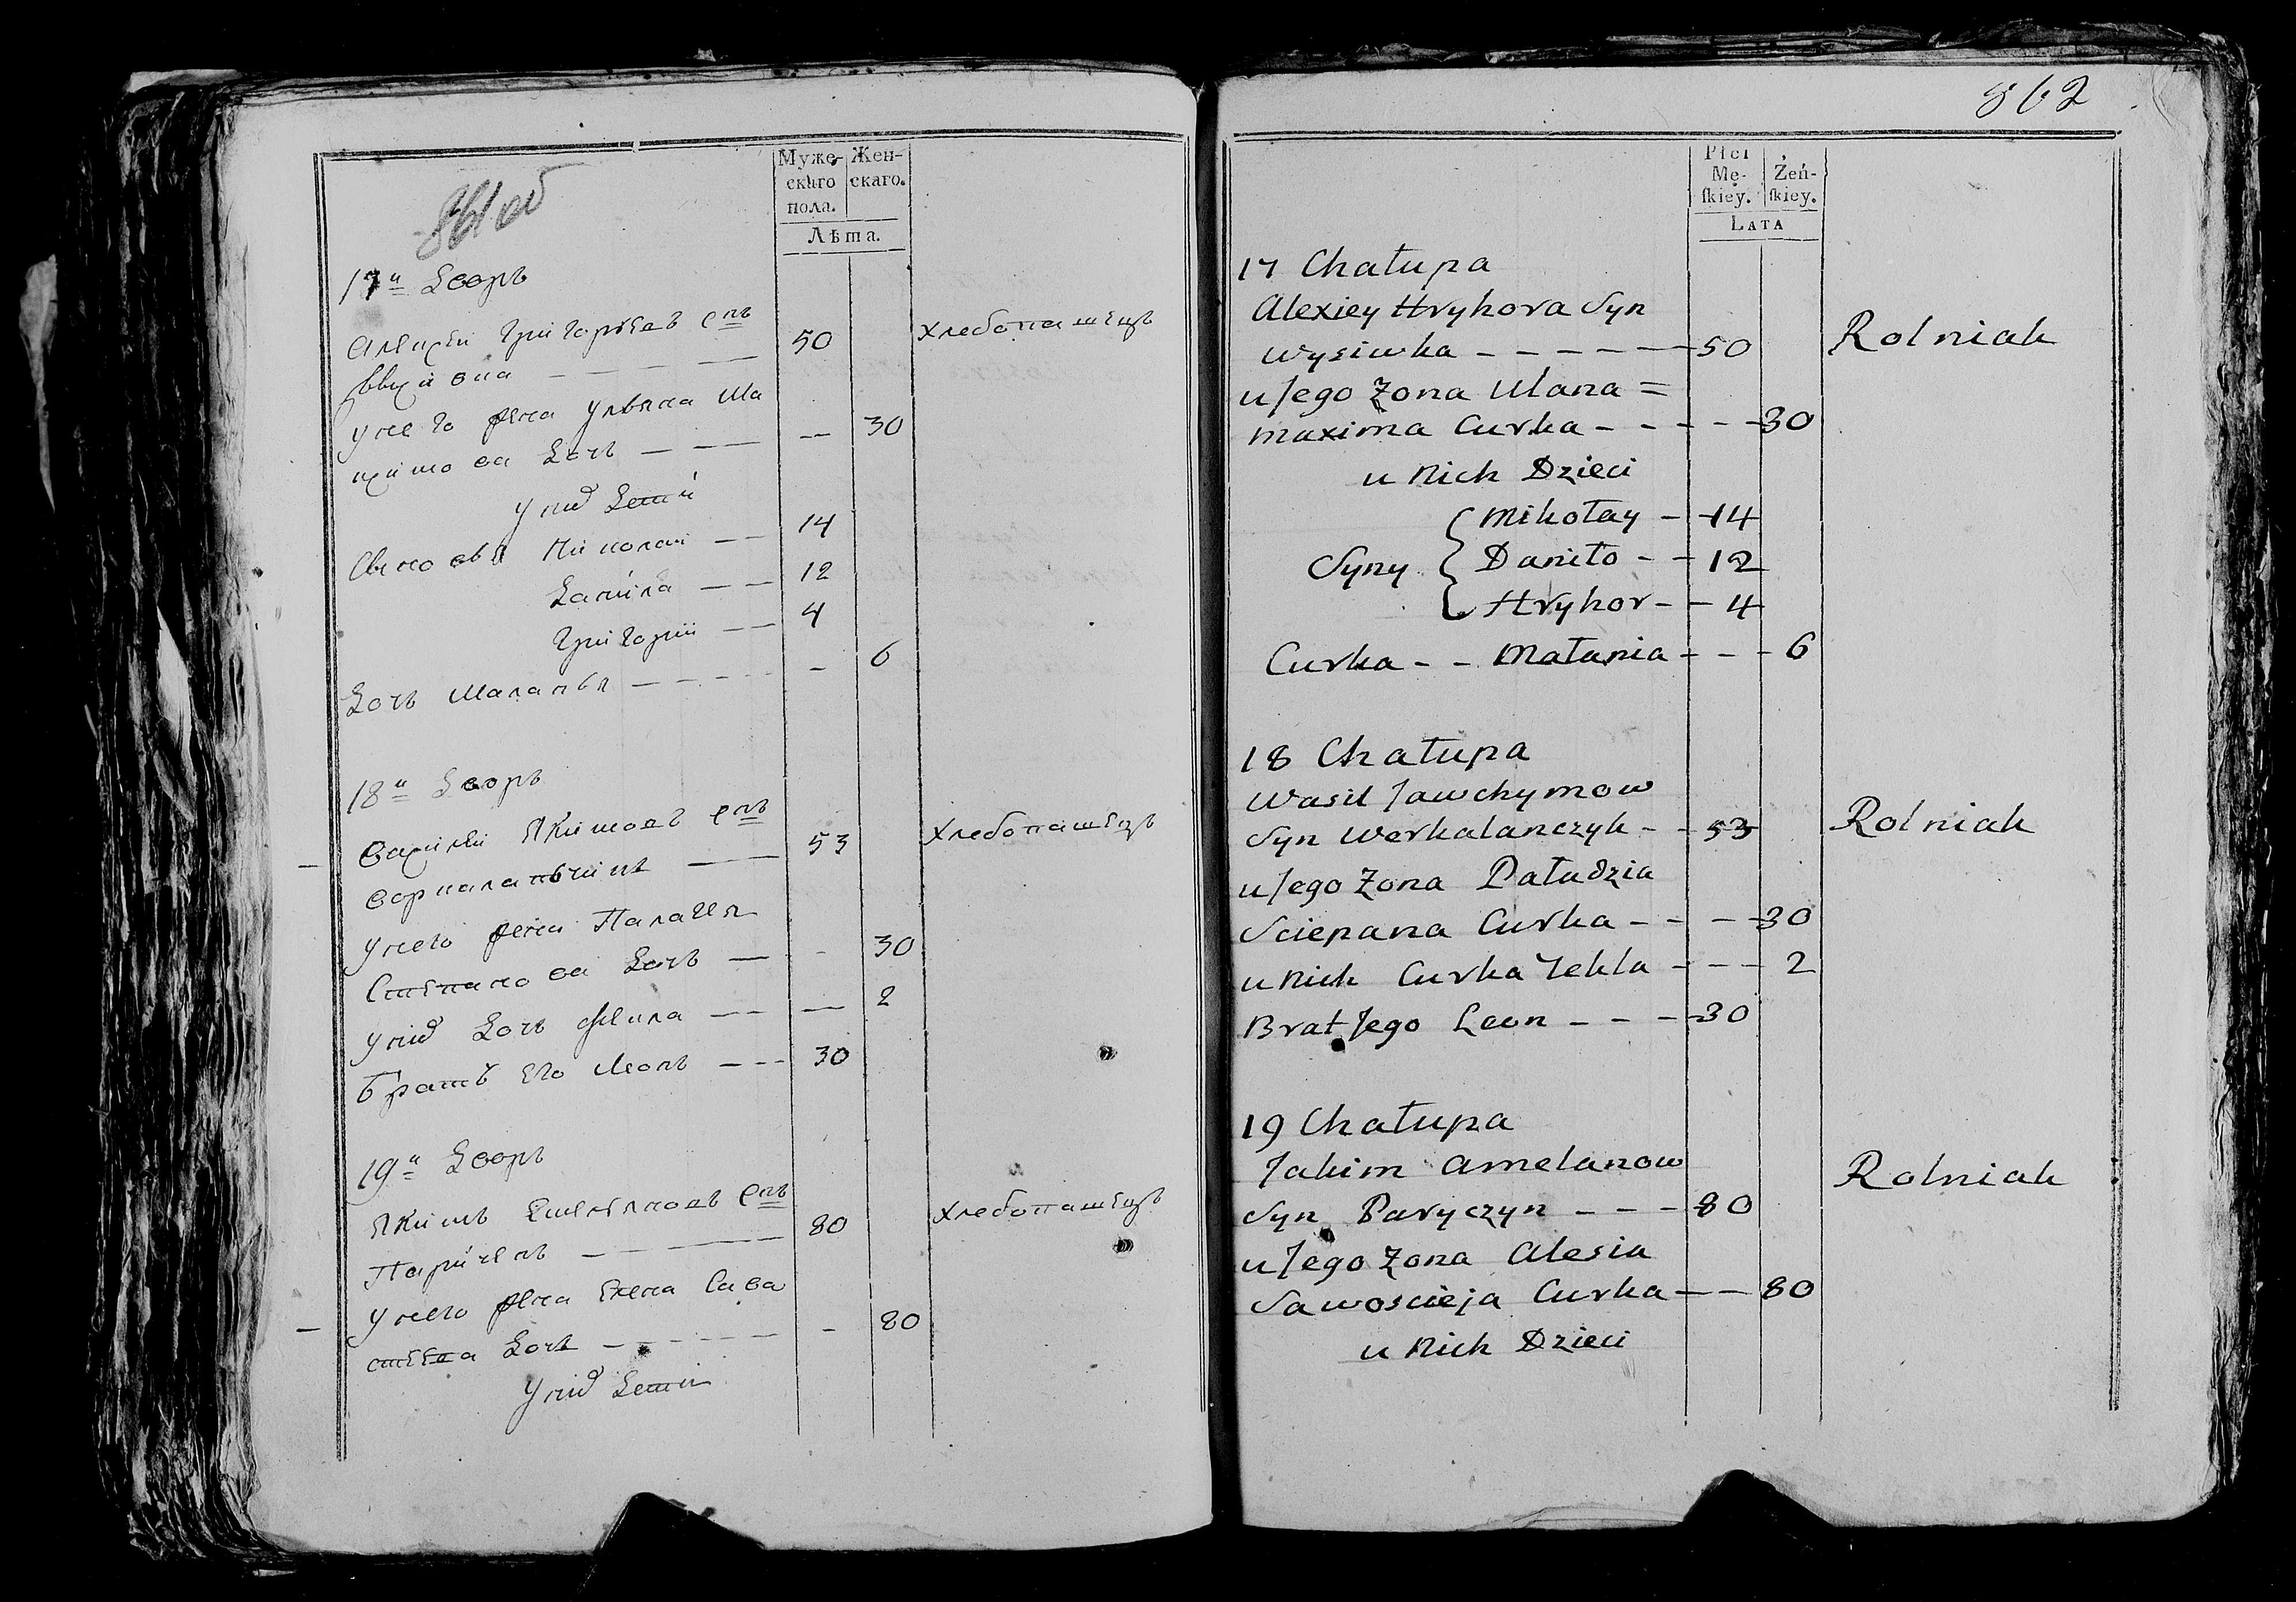 861 об
Муже- Жен-
скаго скаго.
пола.
Лѣта.
17й Дворъ
Алексѣй Григорьевъ снъ 50 хлебопашецъ
Высивка — — — —
у него жена Ульяна Ма
ксимова дочь — — — 30
у них дети
Сыновья Николай — — 14
Данила — — 12
Григорий — — 4
Дочь Маланья — — — — - 6
18й Дворъ
Василий Якимовъ снъ 53 хлебопашецъ
Веркаланчикъ —
у него жена Палагея
Степанова дочь — - 30
у них дочь Фекла — — — 2
братъ его Леонъ — — - 30
19й Дворъ
Якимъ Емельяновъ снъ хлебопашецъ
Паричинъ — — — 80
у него жена Елена Сава
стеева дочь — — — - 80
у них дети
862
Płci
Mę- Żeń-
ſkiey. ſkiey.
LATA
17 Chałupa
Alexiey Hryhora Syn
Wysiwka — — — — — 50 Rolniak
u Jego Żona Ulana =
Maxima Curka — — — — 30
u Nich Dzieci
Mikołay — 14
Syny { Daniło — — 12
Hryhor — — 4
Curka — — Małania — — — 6
18 Chałupa
Wasil Jawchymow
Syn Werkalanczyk — — 53 Rolniak
u Jego Żona Pałudzia
Sciepana Curka — — — 30
u Nich Curka Tekla — — — 2
Brat Jego Leon — — — 30
19 Chałupa
Jakim Amelanow Rolniak
Syn Paryczyn — — — 80
u Jego Żona Alesia
Sawoscieja Curka — — 80
u Nich Dzieci